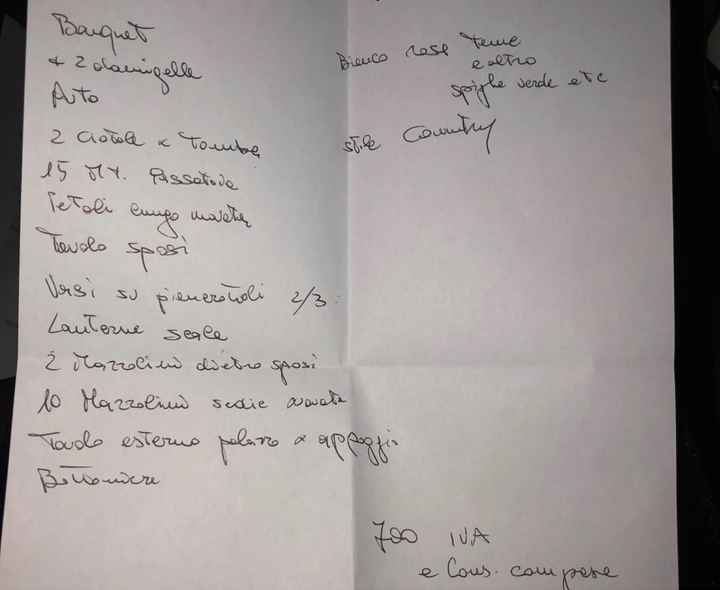 Bouquet
+ 2 damigelle
Auto
2 Ciotole x Tombe
15 MT. Passatoia
Petali lungo navata
Tavolo sposi
Vasi su pianerottoli 2/3
Lanterne scale
2 Mazzolini dietro sposi
10 Mazzolini sedie navata
Tavolo esterno palazzo x appoggio
Bottoniere
Bianco rose Teme
e altro
spighe verde etc
stile Country
700 IVA
e Cons. comprese